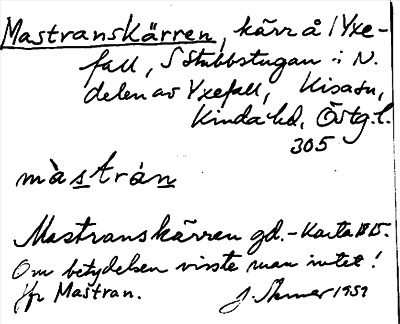 Mastranskärren, kärr å Yxe-
fall, S Stubbstugan i N.
delen av Yxefall, Kisa sn,
Kinda hd, Östg. l.
305
màstrán
Mastranskärren gd. - Karta 1815.
Om betydelsen visste man intet!
Jfr Mastran.
1959